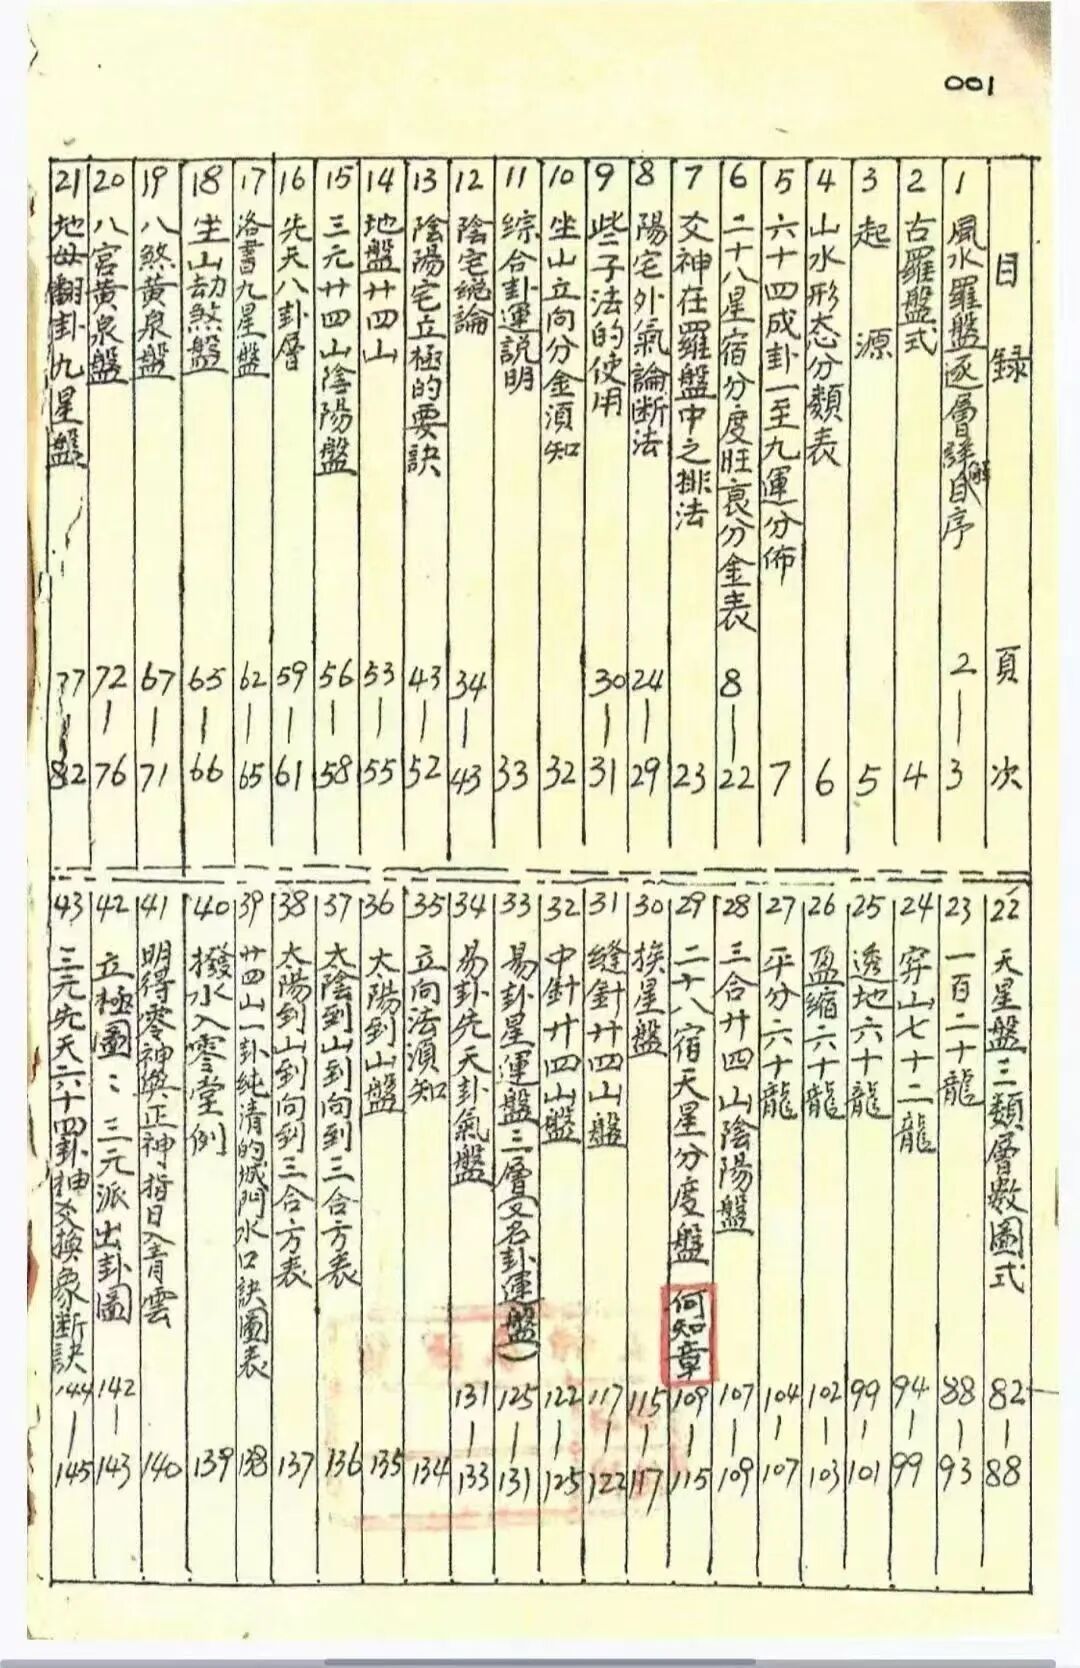 001
目録 頁次
1 風水羅盤逐層詳解自序 2—3
2 古羅盤式 4
3 起源 5
4 山水形态分類表 6
5 六十四成卦一至九運分佈 7
6 二十八星宿分度旺衰分金表 8—22
7 爻神在羅盤中之排法 23
8 陽宅外氣論断法 24—29
9 些子法的使用 30—31
10 坐山立向分金須知 32
11 综合卦運説明 33
12 陰宅總論 34—43
13 陰陽宅立極的要訣 43—52
14 地盤廿四山 53—55
15 三元廿四山陰陽盤 56—58
16 先天八卦層 59—61
17 洛書九星盤 62—65
18 坐山劫煞盤 65—66
19 八煞黄泉盤 67—71
20 八宮黄泉盤 72—76
21 地母翻卦九星盤 77—82
22 天星盤三類層数圖式 82—88
23 一百二十龍 88—93
24 穿山七十二龍 94—99
25 透地六十龍 99—101
26 盈縮六十龍 102—103
27 平分六十龍 104—107
28 三合廿四山陰陽盤 107—109
29 二十八宿天星分度盤 109—115
何知章
30 挨星盤 115—117
31 缝針廿四山盤 117—122
32 中針廿四山盤 122—125
33 易卦星運盤三層(又名卦運盤) 125—131
34 易卦先天卦氣盤 131—133
35 立向法須知 134
36 太陽到山盤 135
37 太陰到山到向到三合方表 136
38 太陽到山到向到三合方表 137
39 廿四山一卦純清的城門水口訣圖表 138
40 撥水入零堂例 139
41 明得零神與正神、指日入青雲 140
42 立極圖：三元派出卦圖 142—143
43 三元先天六十四卦抽爻換象断訣 144—145